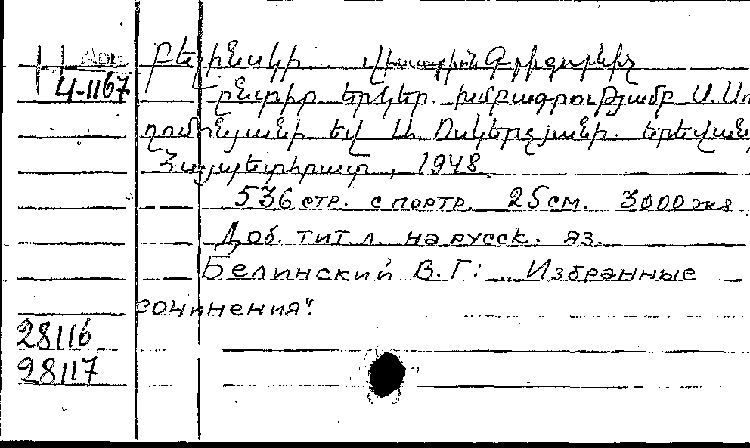 Арм
4-1167
Բելինսկի Վիսարիոն Գրիգորեիչ
Ընտիր երկեր. խմբագրությամբ Ս. Սո
ղոմոնյանի եվ Ա. Ոսկերչյանի. Երեվան
Հայպետհրատ, 1948
536 стр. с портр. 25 см. 3000 экз
Доб. тит л. на русск. яз.
Белинский В.Г: "Избранные
сочинения".
28116
28117